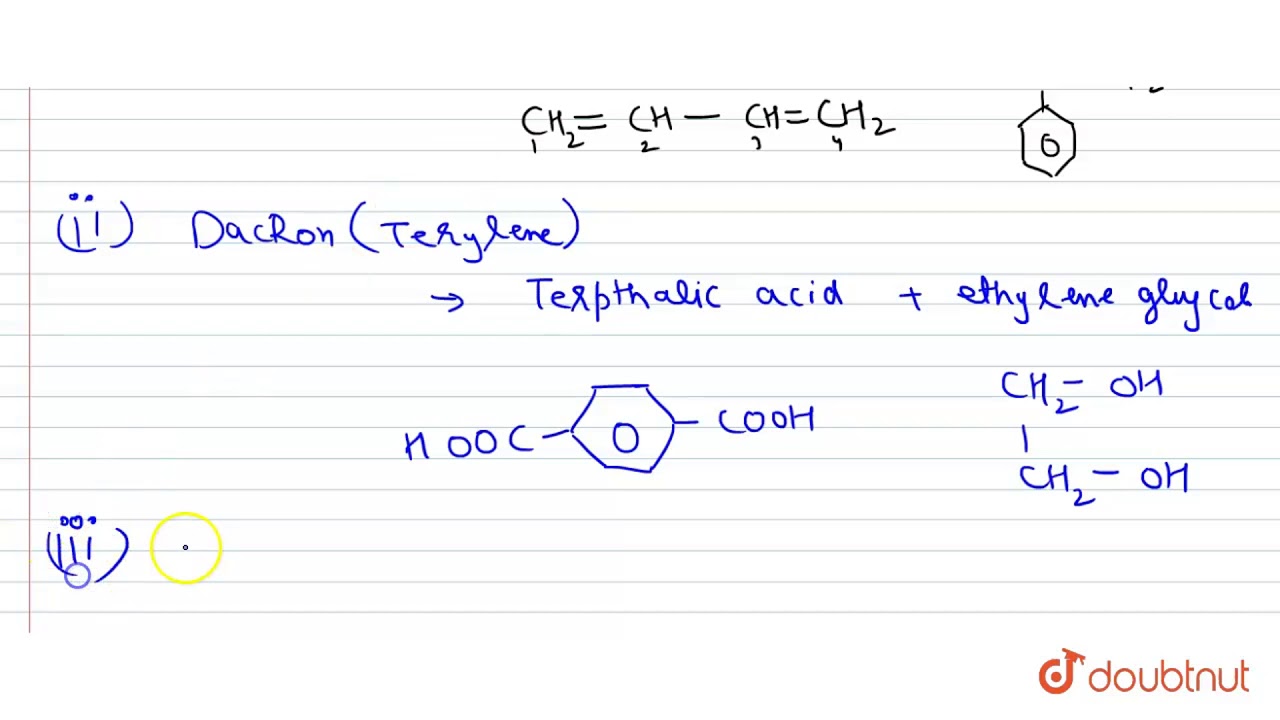 CH2 = CH — CH = CH2
1 2 3 4
(ii) Dacron (Terylene)
→ Terpthalic acid + ethylene glycol
HOOC — COOH
CH2 — OH
CH2 — OH
(iii)
doubtnut